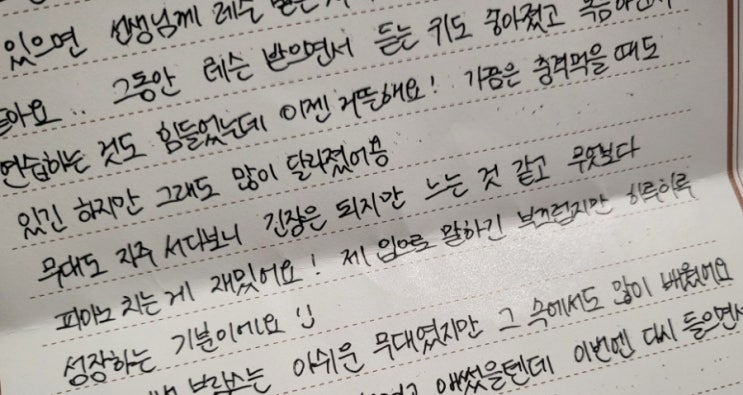 있으면 선생님께 레슨
아요.. 그동안 레슨 받으면서 듣는 귀도 좋아졌고 녹음하면서
연습하는 것도 힘들었는데 이젠 거뜬해요! 가끔은 충격먹을 때도
있긴 하지만 그래도 많이 달라졌어용
무대도 자주 서다보니 긴장은 되지만 느는 것 같고 무엇보다
피아노 치는 게 재밌어요! 제 입으로 말하긴 부끄럽지만 하루하루
성장하는 기분이에요
브람스는 아쉬운 무대였지만 그 속에서도 많이 배웠어요
애썼을텐데 이번엔 다시 들으면서